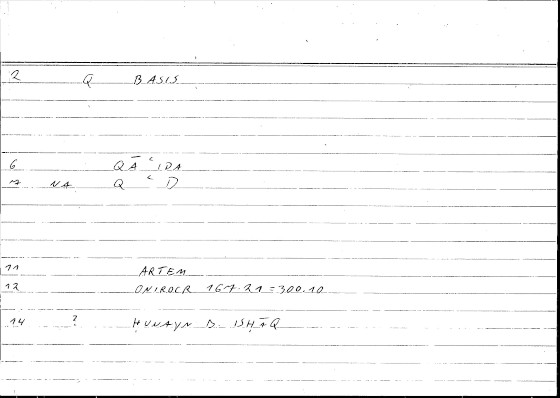 2 Q BASIS
6 QĀʿIDA
7 NA Q ʿ D
11 ARTEM
12 ONIROCR 167.21=300.10
14 ? HUNAYN B. ISHĀQ